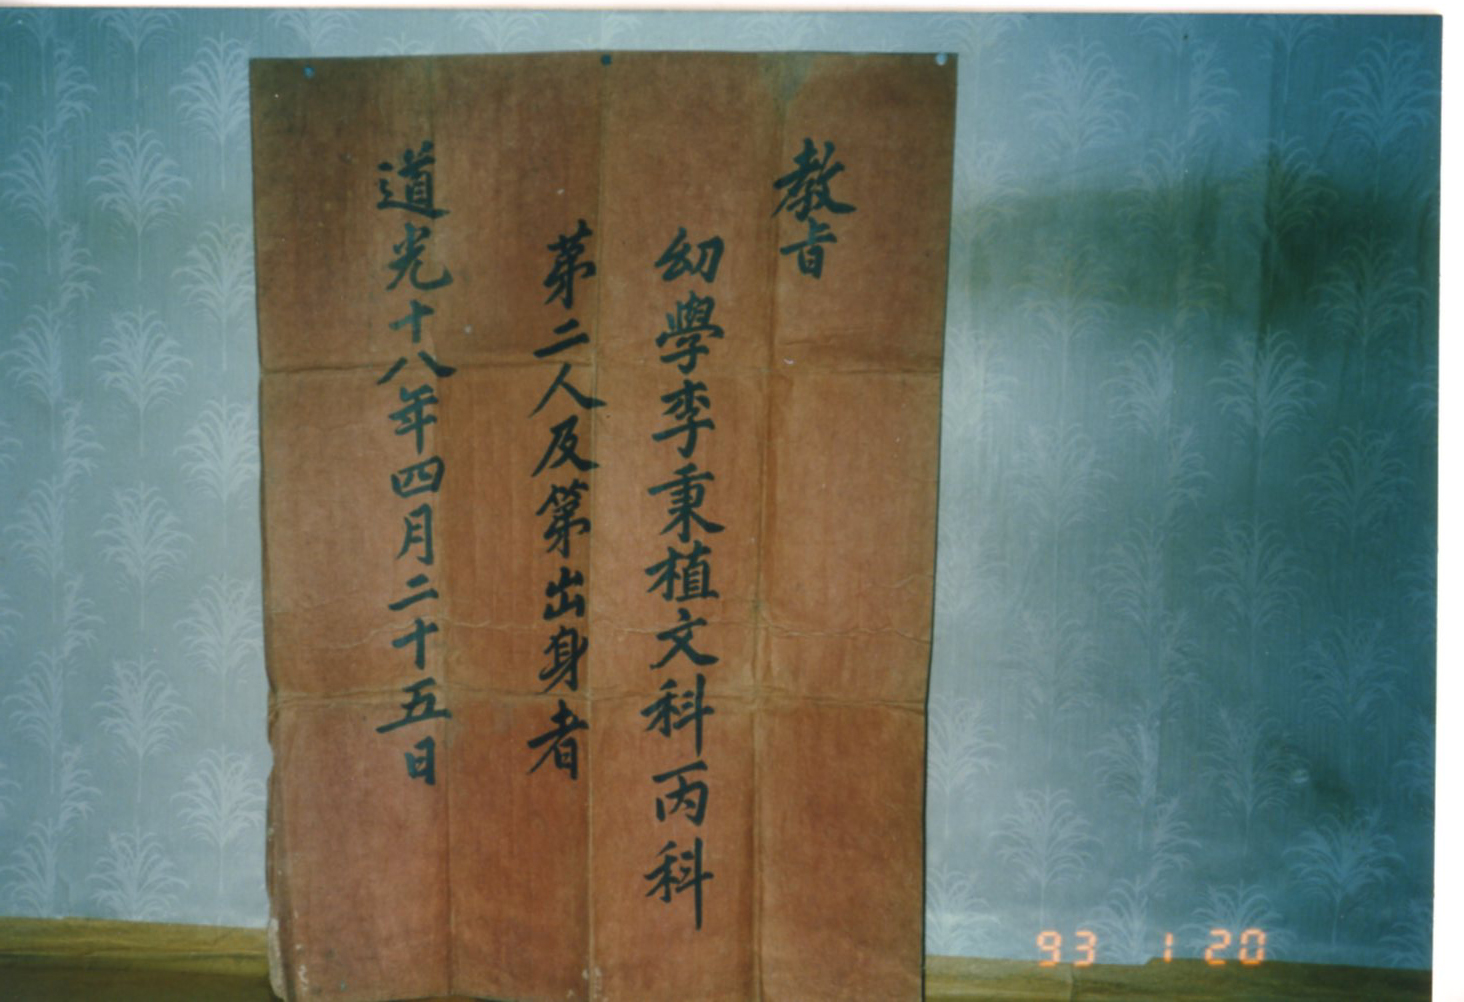 教旨
幼學李秉植文科丙科
苐二人及第出身者
道光十八年四月二十五日
93 1 20